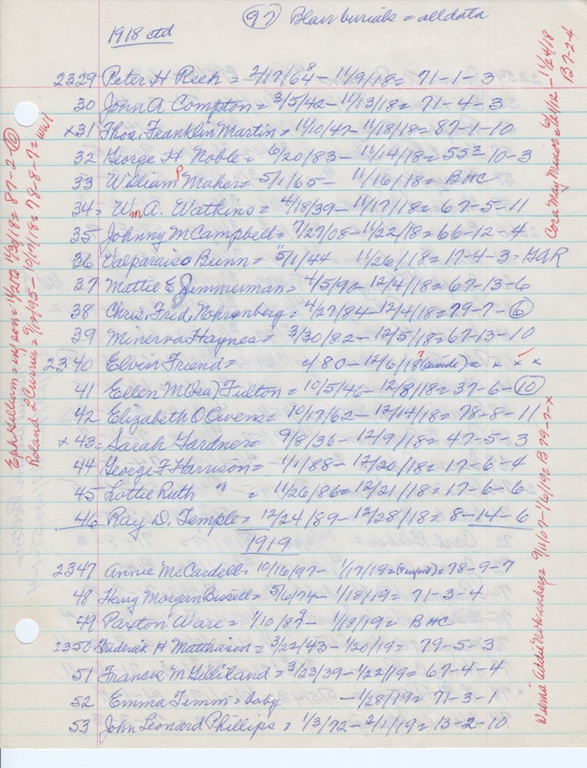 (97) Blair burials = all data
1918 ctd
2329 Peter H Reeh = 2/17/648 - 11/9/18 = 71-1-3
30 John A Compton = 3/5/42 - 11/13/18 = 71-4-3
x31 Thos. Franklin Martin = 11/10/47 - 11/18/18 = 87-1-10
32 George H. Noble = 6/20/83 - 11/14/18 = 10-3
33 William P Maher = 5/1/65 - 11/16/18 = BHC
34 = Wm A. Watkins = 4/18/39 - 11/17/18 = 67-5-11
35 Johnny M Campbell = 7/27/08 - 11/22/18 = 66-12-4
36 Valparaiso Bunn = 5/1/44 - 11/26/18 = 17-4-3 = GAR
37 Mottie E Zimmerman = 4/5/92 - 12/4/18 = 67-13-6
38 Chris. Fred. Nohrenberg = 4/27/84 - 12/4/18 = 79-7-(6)
39 Minerva Haynes = 3/30/82 - 12/5/18 = 67-13-10
2340 Elvir Friend = c/80 - 12/6/18 ? (suicide) = x x x
41 Ellen M (Rea) Fulton = 10/5/46 - 12/8/18 = 37-6-(10)
42 Elizabeth O Owens = 10/17/62 - 12/14/18 = 78-8-11
x43 = Sarah Gardner = 9/8/36 - 12/9/18 = 47-5-3
44 George F Harrison = 1/1/88 - 12/20/18 = 17-6-4
45 Lottie Ruth " = 11/26/86 - 12/21/18 = 17-6-6
46 Ray D. Temple = 12/24/89 - 12/28/18 = 8-14-6
1919
2347 Annie McCardell 10/16/97 - 1/17/19 = 78-9-7
48 Henry Morgan Bussell = 5/6/74 - 1/18/19 = 71-3-4
49 Paxton Ware = 1/10/879 - 1/18/19 = BHC
2350 Frederick H Matthiesen = 3/22/43 - 1/20/19 = 79-5-3
51 Francis M Gilliland = 3/23/39 - 1/22/19 = 67-4-4
52 Emma Timm = baby - 1/28/19 = 71-3-1
53 John Leonard Phillips = 1/3/72 - 2/1/19 = 13-2-10
Cora May Minier = 6/1/12 - 1/24/18
137-2-4
Roland L Currier = 9/10/95 - 10/17/18 = 78-8-7 =
Addie Nohrenberg = 9/11/67 - 1/16/19 = B 79-7-x